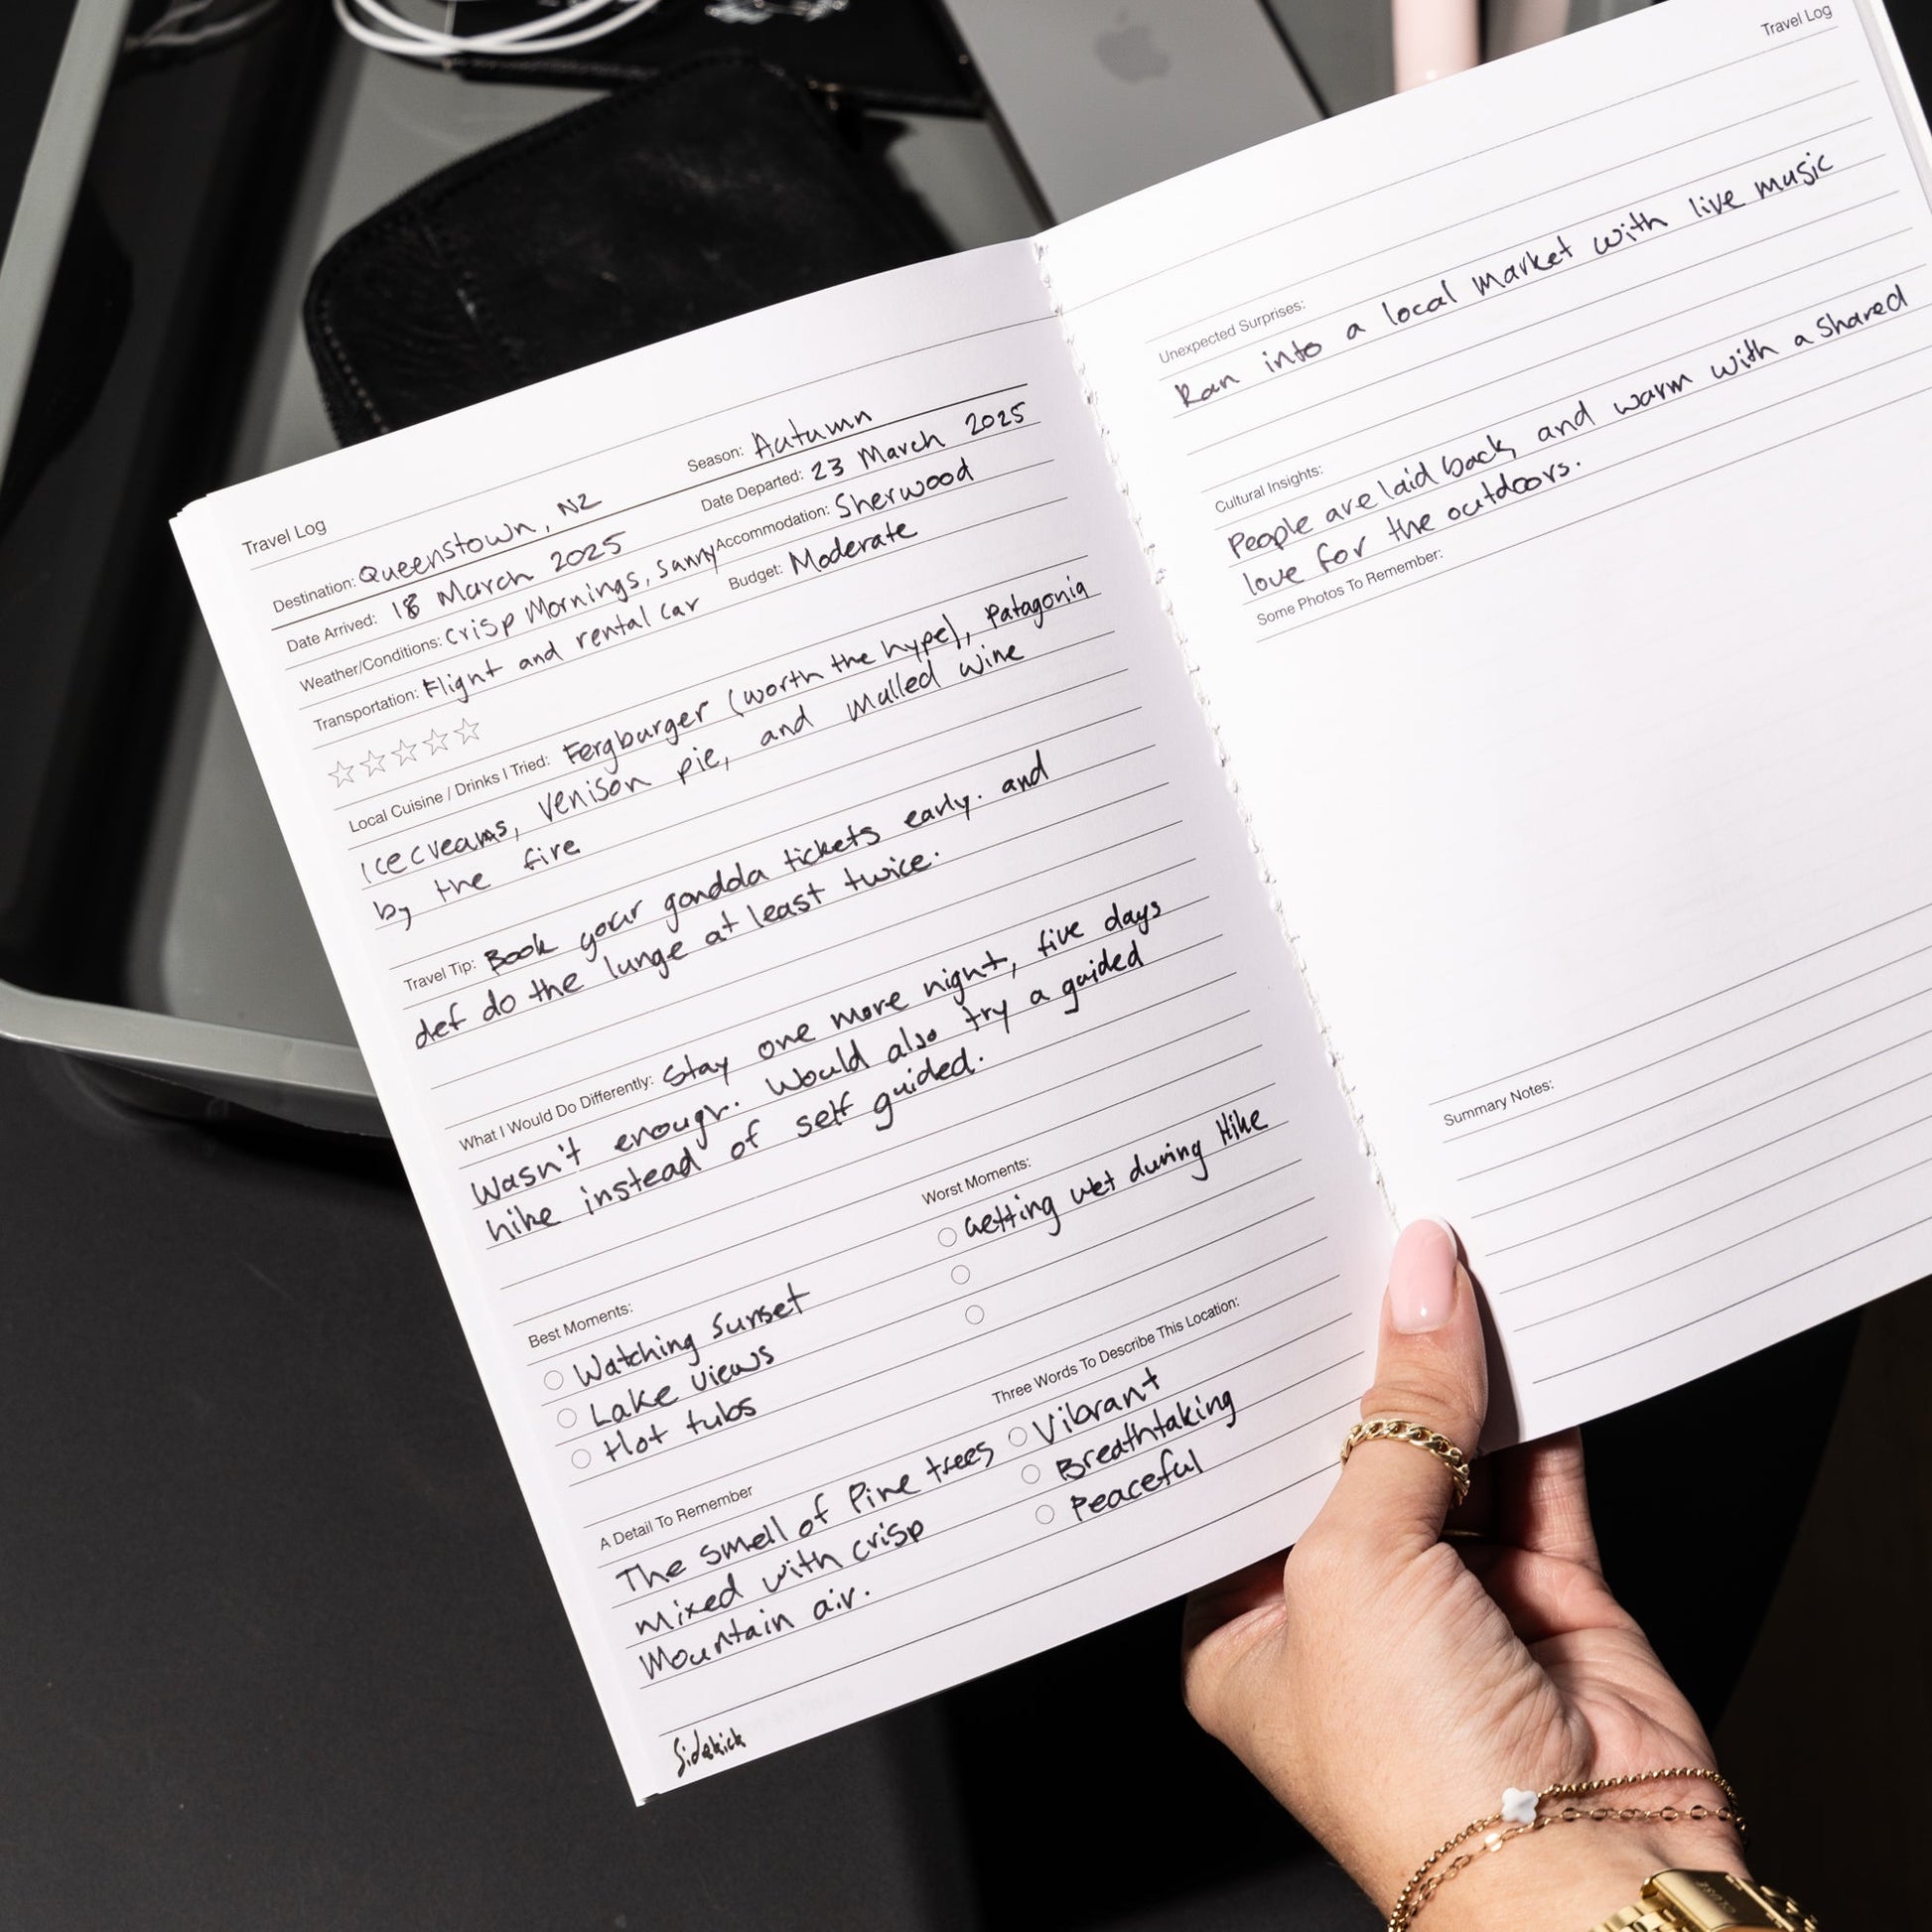 Travel Log
Destination: Queenstown, NZ Season: Autumn
Date Arrived: 18 March 2025 Date Departed: 23 March 2025
Weather/Conditions: Crisp Mornings, sunny Accommodation: Sherwood
Transportation: Flight and rental car Budget: Moderate
Local Cuisine / Drinks I Tried: Fergburger (worth the hype), Patagonia
Icecreams, venison pie, and mulled wine
by the fire
Travel Tip: Book your gondola tickets early. and
def do the lunge at least twice.
What I Would Do Differently: Stay one more night, five days
wasn't enough. Would also try a guided
hike instead of self guided.
Best Moments:
Watching Sunset
Lake views
Hot tubs
Worst Moments:
Getting wet during Hike
A Detail To Remember
The smell of Pine trees
mixed with crisp
Mountain air.
Three Words To Describe This Location:
Vibrant
Breathtaking
Peaceful
Sidekick
Travel Log
Unexpected Surprises:
Ran into a local market with live music
Cultural Insights:
People are laid back, and warm with a shared
love for the outdoors.
Some Photos To Remember:
Summary Notes: